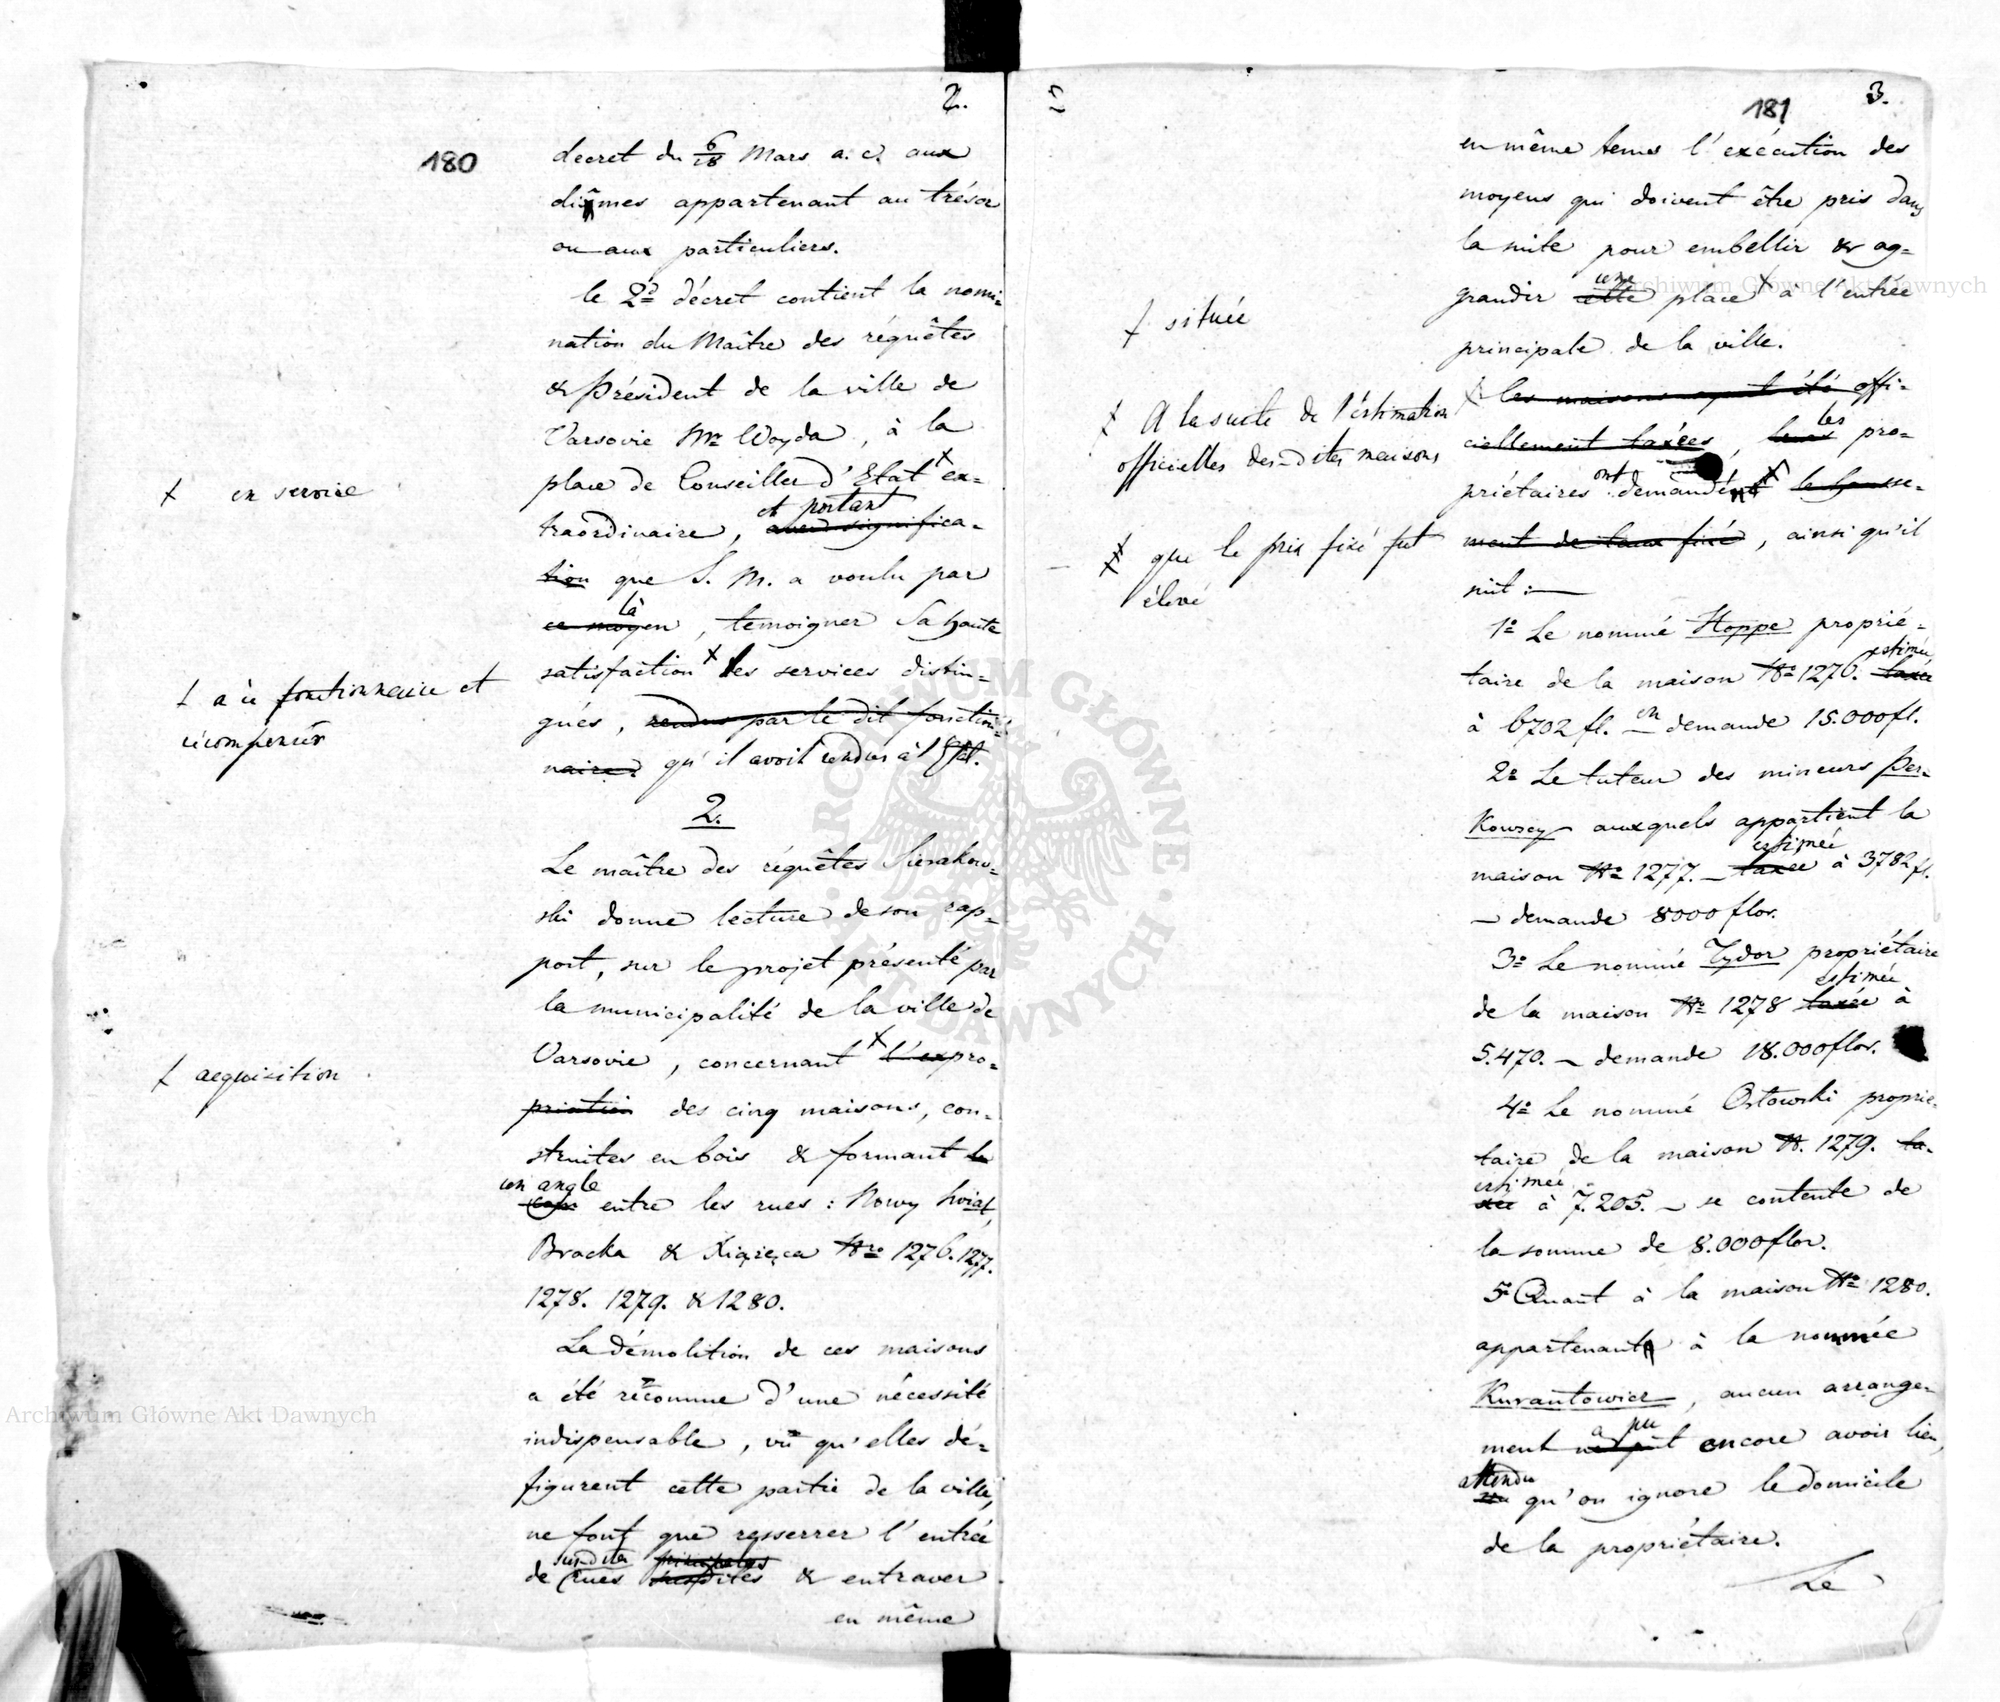 2.
180
decret du 6/18 Mars a. c. aux
dîmes appartenant au trésor
ou aux particuliers.
le 2d décret contient la nomi=
nation du Maître des réquêtes
& Président de la ville de
Varsovie Mr Woyda, à la
place de Conseiller d'Etat x ex=
x en service
et portant
traordinaire, avec significa=
tion que S. M. a voulu par
là
ce moyen, temoigner Sa haute
satisfaction x des services distin=
x a ce fonctionnaire et
récompenser
gués, rendus par le dit fonction=
naire. qu'il avoit rendus à l'Etat.
2.
Le maître des réquêtes Sierakow=
ski donne lecture de son rap=
port, sur le projet présenté par
la municipalité de la ville de
Varsovie, concernant x l'expro=
x acquisition
priation des cinq maisons, con=
struites en bois & formant le
un angle
coin entre les rues: Nowy Swiat,
Bracka & Xiążęca Nro 1276. 1277.
1278. 1279. & 1280.
La démolition de ces maisons
a été réconnue d'une nécessité
indispensable, vu qu'elles dé=
figurent cette partie de la ville,
ne font que resserrer l'entrée
susdites principales
de rues susdites & entraver
en même
181
3.
en même tems l'exécution des
moyens qui doivent être pris dans
la suite pour embellir & ag=
une
grandir cette place x à l'entrée
x située
principale de la ville.
x les maisons ayant été offi=
x A la suite de l'estimation
officielles des-dites maisons
les
ciellement taxées, leurs pro=
ont
priétaires demandé x le hausse=
x que le prix fixé fut
élevé
ment de taux fixé, ainsi qu'il
suit:
1o Le nommé Hoppe proprié=
estimée
taire de la maison No 1276. taxée
en
à 6702 fl. demande 15.000 fl.
2o Le tuteur des mineurs Per=
kowscy auxquels appartient la
estimée
maison No 1277. taxée à 3782 fl.
demande 8000 flor.
3o Le nommé Tydor propriétaire
estimée
de la maison No 1278 taxée à
5.470. demande 18.000 flor.
4o Le nommé Ostowski proprié=
taire de la maison N. 1279. ta=
estimée
xée à 7.205. se contente de
la somme de 8.000 flor.
5o Quant à la maison No 1280.
appartenant à la nommée
Kurantowicz, aucun arrange=
a pu
ment ne put encore avoir lieu,
attendu
vu qu'on ignore le domicile
de la propriétaire.
Le
Archiwum Główne Akt Dawnych
Archiwum Główne Akt Dawnych
ARCHIWUM GŁÓWNE · AKT DAWNYCH ·